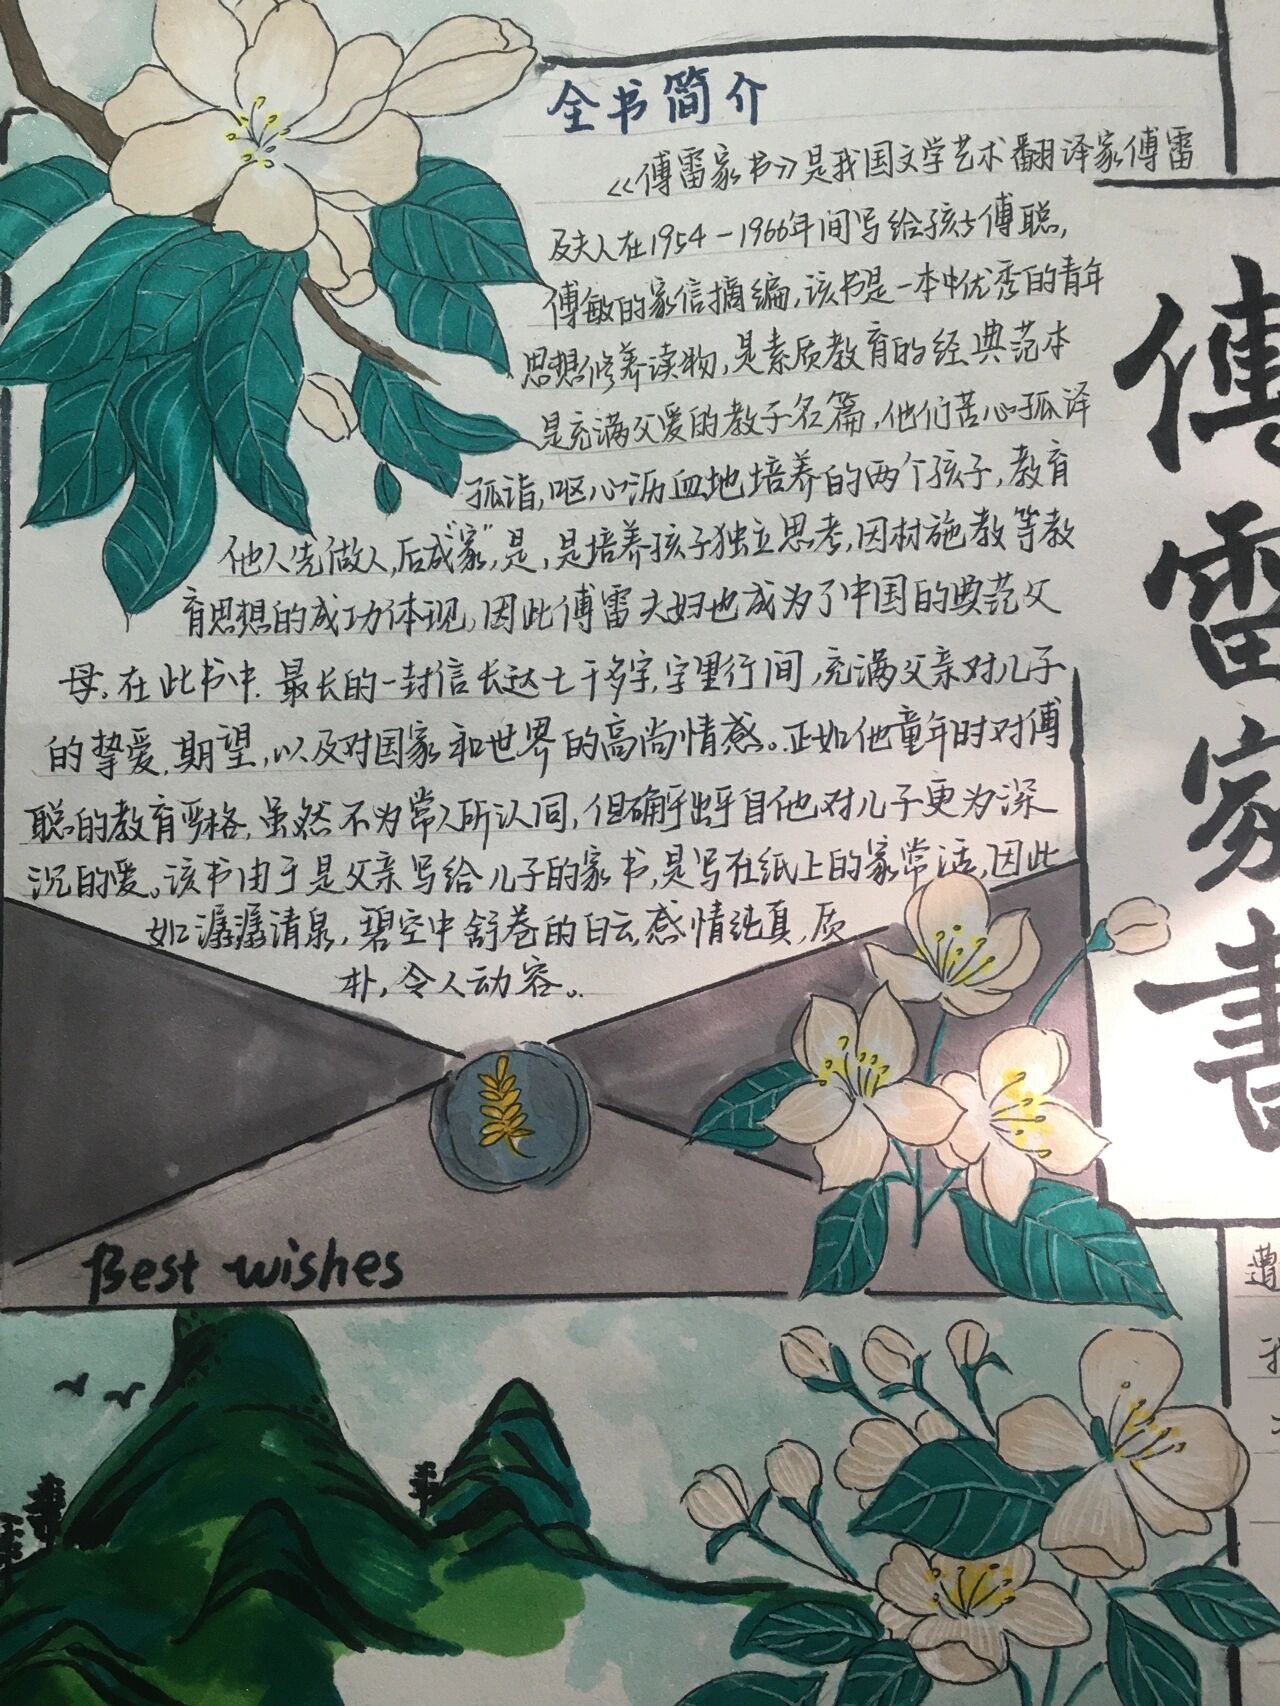 全书简介
《傅雷家书》是我国文学艺术翻译家傅雷
及夫人在1954-1966年间写给孩士傅聪,
傅敏的家信摘编,该书是一本中优秀的青年
思想修养读物,是素质教育的经典范本
是充满父爱的教子名篇,他们苦心孤译
孤诣,呕心沥血地培养的两个孩子,教育
他人先做人,后成"家",是,是培养孩子独立思考,因材施教等教
育思想的成功体现,因此傅雷夫妇也成为了中国的典范父
母,在此书中.最长的一封信长达七千多字,字里行间,充满父亲对儿子
的挚爱,期望,以及对国家和世界的高尚情感。正如他童年时对傅
聪的教育严格,虽然不为常人所认同,但确乎出乎自他对儿子更为深
沉的爱。该书由于是父亲写给儿子的家书,是写在纸上的家常话,因此
如潺潺清泉,碧空中舒卷的白云,感情纯真,质
朴,令人动容。
Best wishes
傅雷家书
遭
我